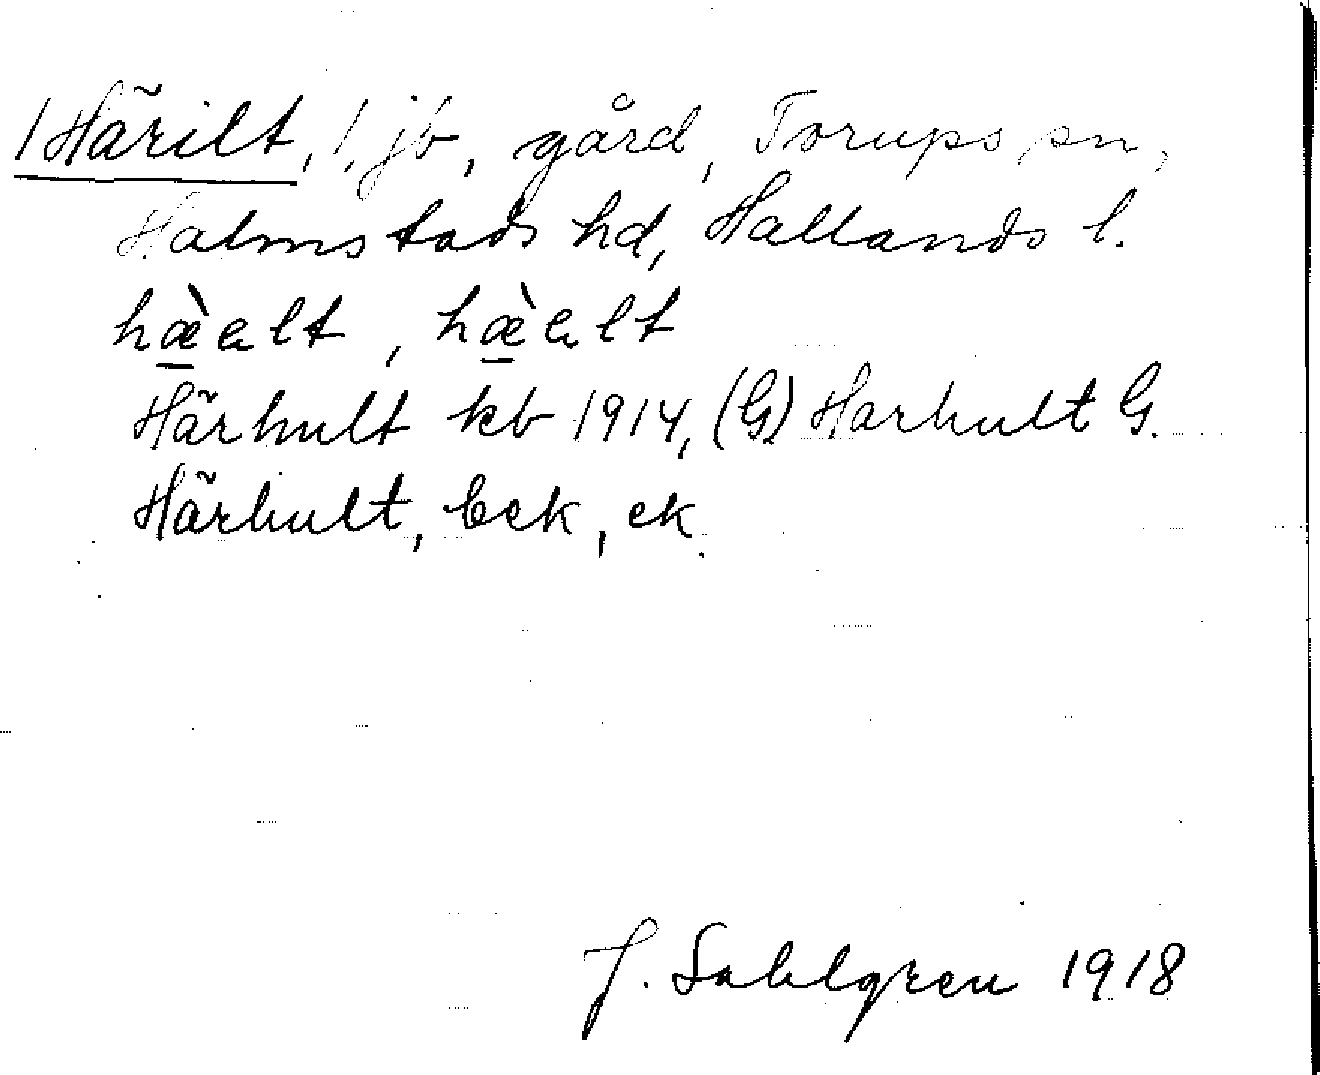 1 Härilt, 1, jb, gård, Torups sn,
Halmstads hd, Hallands l.
hæ̀elt, hæ̀elt
Härhult kb 1914, (G) Harhult G.
Härhult, Eek, ek.
J. Sahlgren 1918